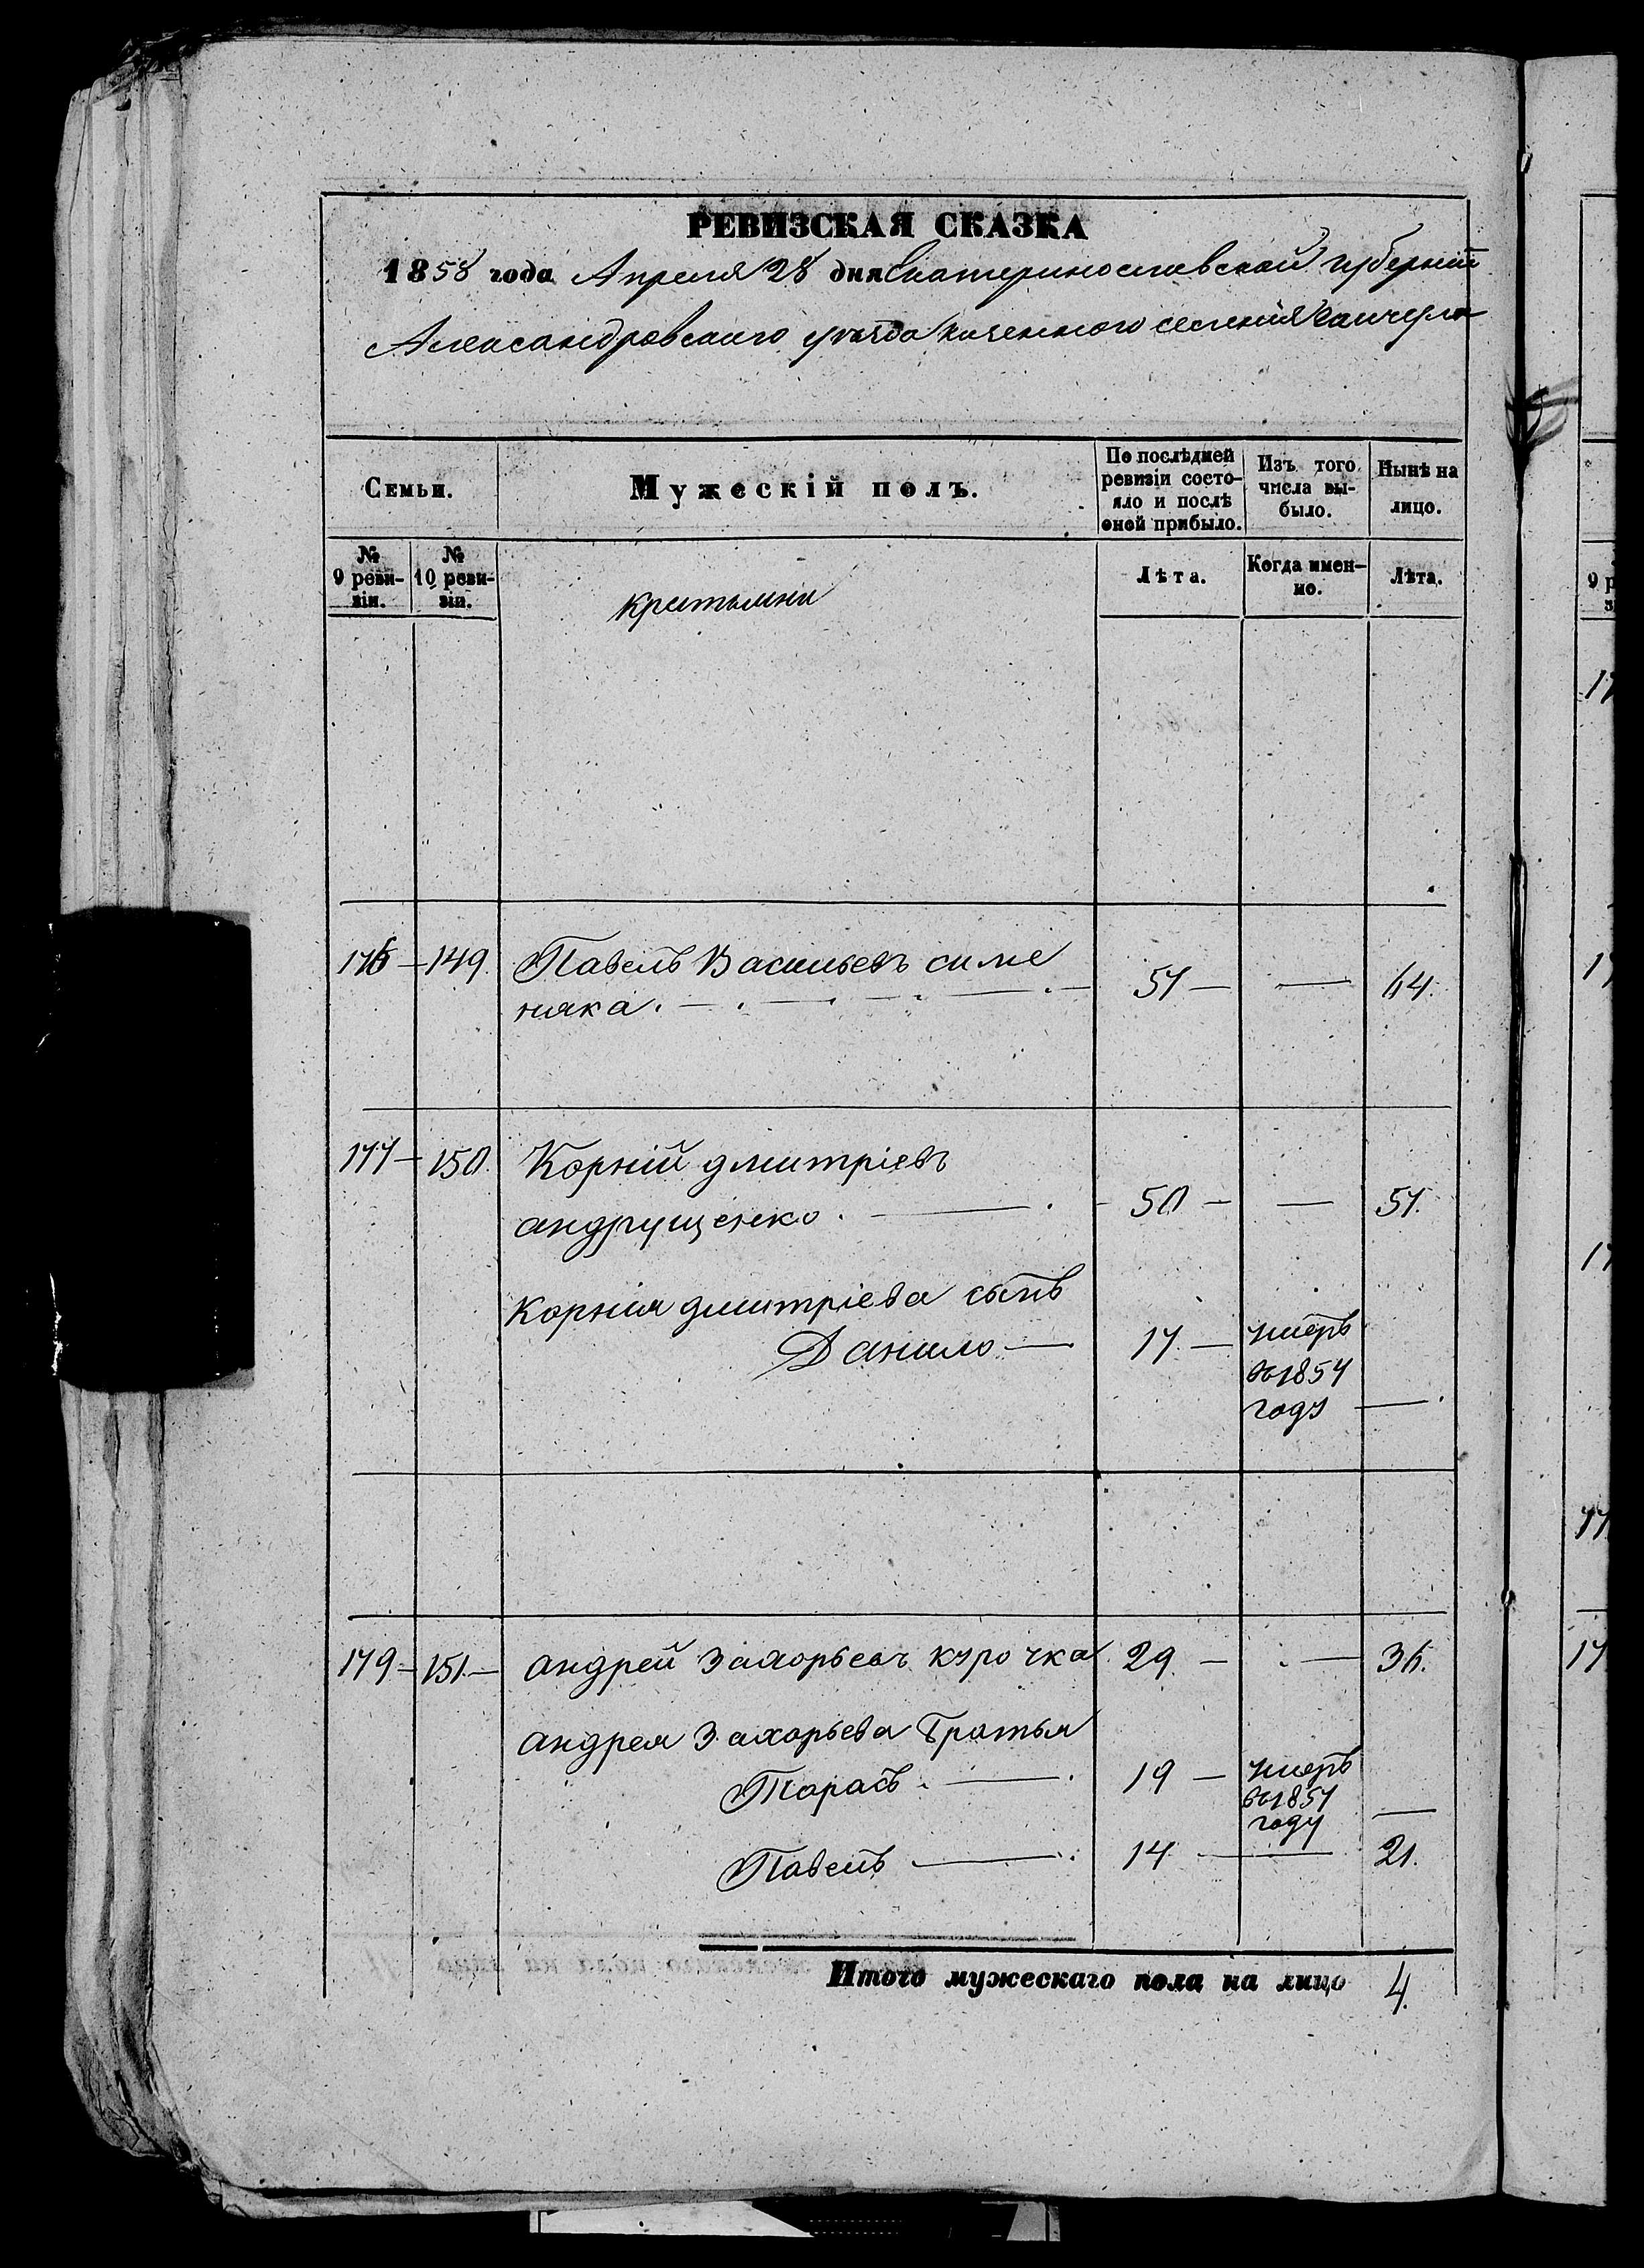 РЕВИЗСКАЯ СКАЗКА
1858 года Апреля 28 дня Екатеринославской губерніи
Александровскаго уѣзда казенного селенія
Семьи.
Мужескій полъ.
По послѣдней ревизіи состояло и послѣ оной прибыло.
Изъ того числа выбыло.
Нынѣ на лицо.
№ 9 ревизіи.
№ 10 ревизіи.
крестьяни
Лѣта.
Когда именно.
Лѣта.
176 — 149. Павелъ Васильевъ симе
няка. — 51 — — 64.
177 — 150. Корній дмитріевъ
андрущенко. — 50 — — 57.
Корнія дмитріева сынъ
Данило — 17. — умеръ
въ 1854
году —
179 — 151. — андрей Захорьевъ курочка 29. — — 36.
андрея Захорьева Братья
Тарасъ — 19 — умеръ
въ 1857
году —
Павелъ — 14 — 21.
Итого мужескаго пола на лицо 4.
9 р
17
17
17
17
17